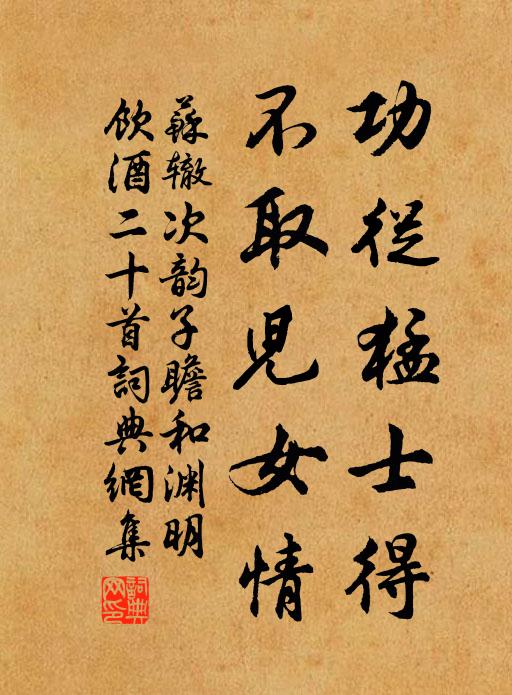 功從猛士得
不取兒女情
蘇辙次韵子瞻和渊明
飲酒二十首詞典網集
詞典网印